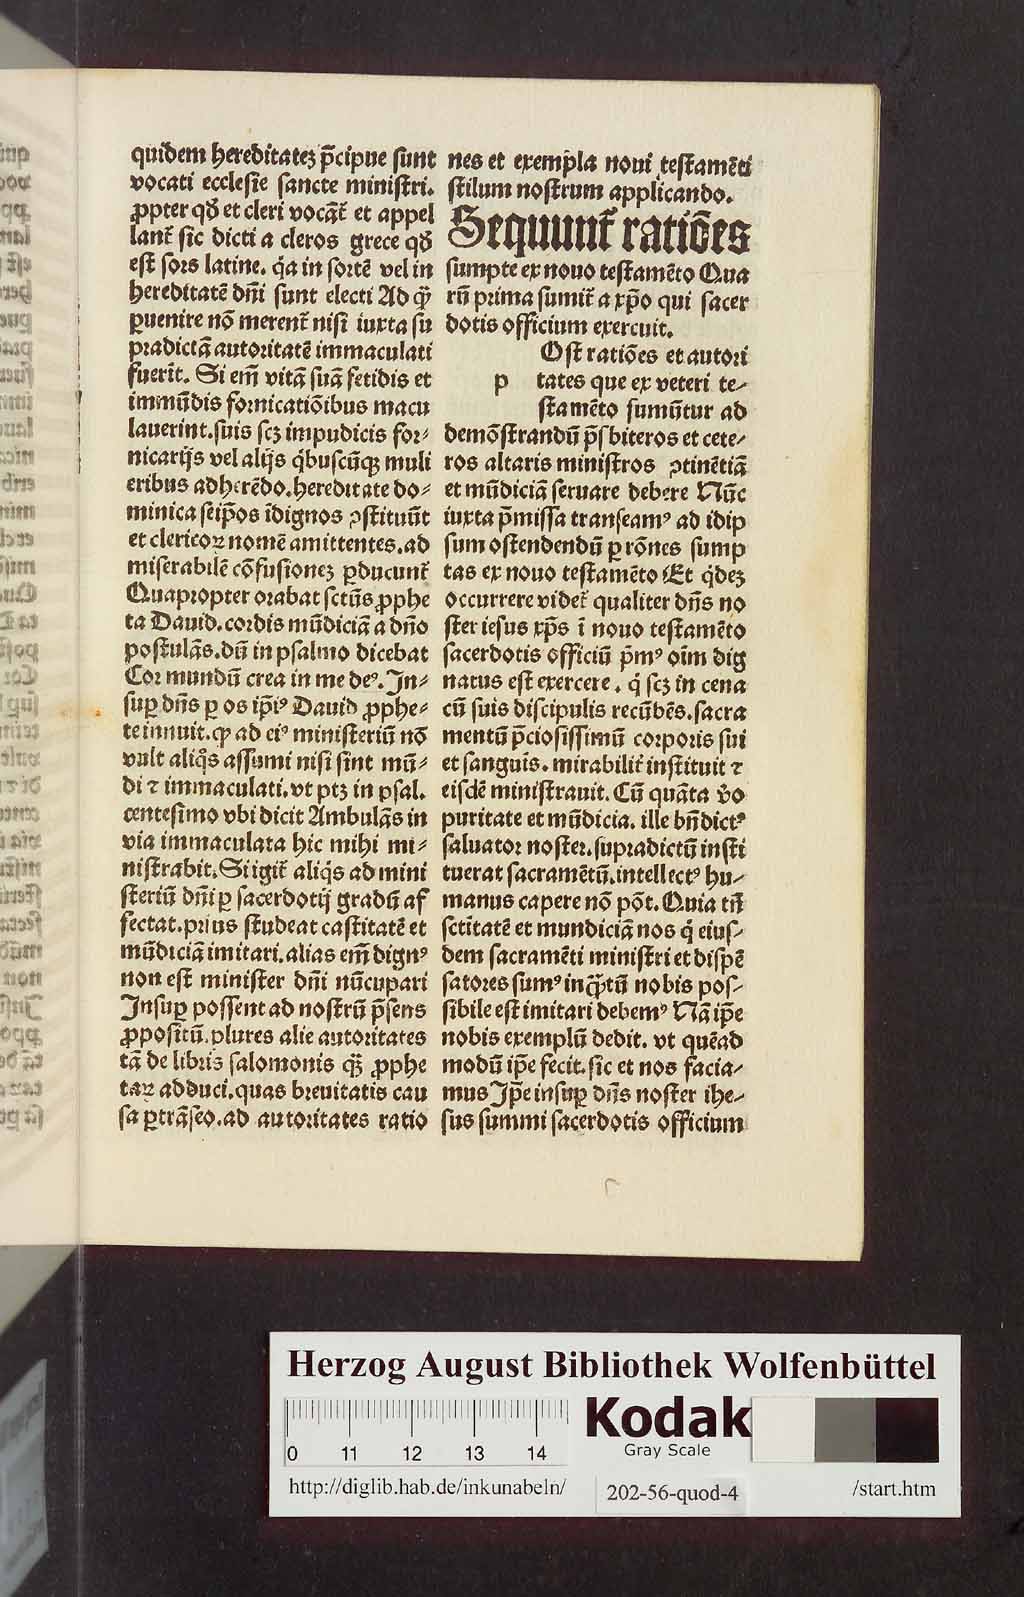 quidem hereditatez p̄cipue sunt
vocati ecclesie sancte ministri.
ꝓpter qđ et cleri vocāt᷑ et appel
lant᷑ sic dicti a cleros grece qđ
est sors latine. q̇a in sortē vel in
hereditatē dn̄i sunt electi Ad q̄ꝫ
ꝑuenire nō merent᷑ nisi iuxta su
pradictā autoritatē immaculati
fuerīt. Si em̄ vitā suā fetidis et
immūdis fornicatiōibus macu
lauerint. suis scꝫ impudicis for⸗
nicarijs vel alijs q̇buscūqꝫ muli
eribus adherēdo. hereditate do⸗
minica seip̄os īdignos ꝯstituūt
et clericoꝝ nomē amittentes. ad
miserabilē cōfusionez ꝑducunt᷑
Quapropter orabat sctūs ꝓphe
ta Dauid. cordis mūdiciā a dn̄o
postulās. dū in psalmo dicebat
Cor mundū crea in me deꝰ. In⸗
suꝑ dn̄s ꝑ os ip̄iꝰ Dauid ꝓphe⸗
te innuit. ꝙ ad eiꝰ ministeriū nō
vult aliq̇s assumi nisi sint mū⸗
di ⁊ immaculati. vt ptꝫ in psal.
centesimo vbi dicit Ambulās in
via immaculata hic mihi mi⸗
nistrabit. Si igit᷑ aliq̇s ad mini
steriū dn̄i ꝑ sacerdotij gradū af
fectat. prius studeat castitatē et
mūdiciā imitari. alias em̄ dignꝰ
non est minister dn̄i nūcupari
Insuꝑ possent ad nostrū p̄sens
ꝓpositū. plures alie autoritates
tā de libris salomonis q̄ꝫ ꝓphe
taꝝ adduci. quas breuitatis cau
sa ꝑtrāseo. ad autoritates ratio
nes et exempla noui testamēti
stilum nostrum applicando.
Sequunt᷑ ratiōes
sumpte ex nouo testamēto Qua
rū prima sumit᷑ a xp̄o qui sacer
dotis officium exercuit.
Ost ratiōes et autori
p tates que ex veteri te⸗
stamēto sumūtur ad
demōstrandū p̄sbiteros et cete⸗
ros altaris ministros ꝯtinētiā
et mūdiciā seruare debere Nūc
iuxta p̄missa transeamꝰ ad idip
sum ostendendū ꝑ rōnes sump
tas ex nouo testamēto Et q̇dez
occurrere videt᷑ qualiter dn̄s no
ster iesus xp̄s ī nouo testamēto
sacerdotis officiū p̄mꝰ oīm dig
natus est exercere. q̇ scꝫ in cena
cū suis discipulis recūbēs. sacra
mentū p̄ciosissimū corporis sui
et sanguīs. mirabilit᷑ instituit ⁊
eisdē ministrauit. Cū quāta v̄o
puritate et mūdicia. ille bn̄dictꝰ
saluator noster. supradictū insti
tuerat sacramētū. intellectꝰ hu⸗
manus capere nō pōt. Quia tn̄
sctītatē et mundiciā nos q̇ eius⸗
dem sacramēti ministri et dispē
satores sumꝰ inq̄ꝫtū nobis pos⸗
sibile est imitari debemꝰ Nā ip̄e
nobis exemplū dedit. vt quēad
modū ip̄e fecit. sic et nos facia⸗
mus Ip̄e insuꝑ dn̄s noster ihe⸗
sus summi sacerdotis officium
Herzog August Bibliothek Wolfenbüttel
0 11 12 13 14
Kodak
Gray Scale
http://diglib.hab.de/inkunabeln/
202-56-quod-4
/start.htm